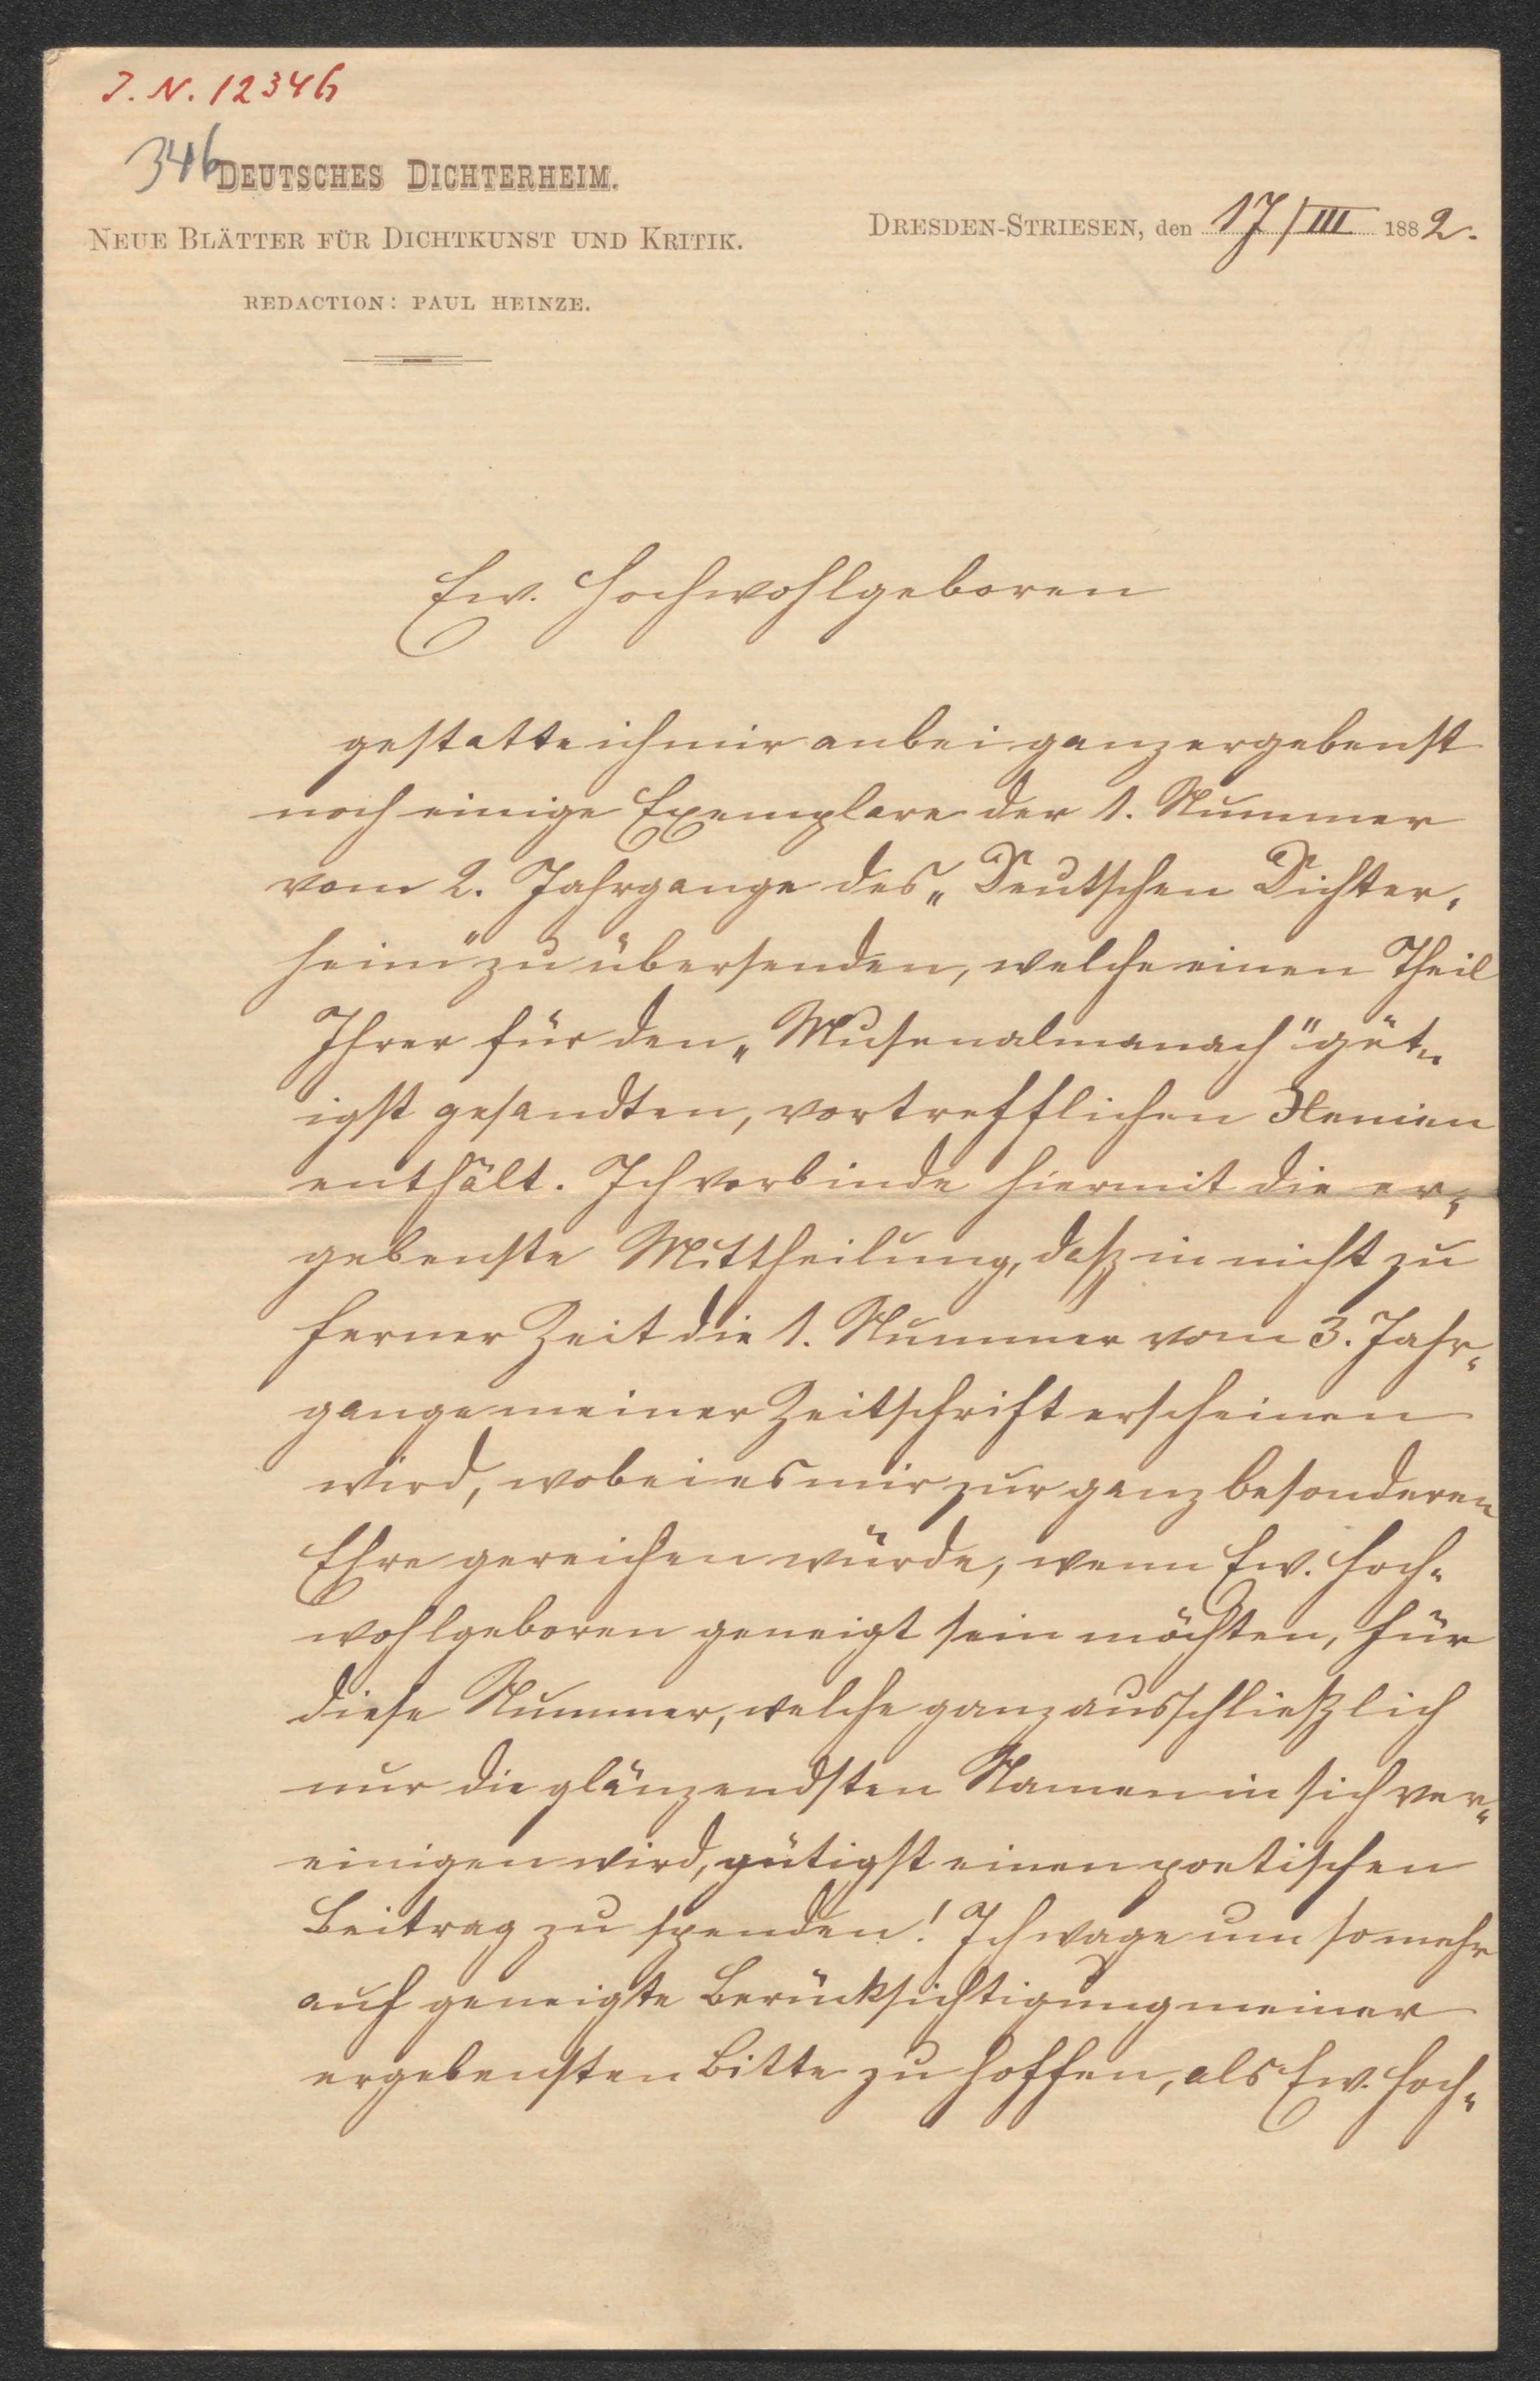 J. N. 12346
346
DEUTSCHES DICHTERHEIM.
NEUE BLÄTTER FÜR DICHTKUNST UND KRITIK.
REDACTION: PAUL HEINZE.
DRESDEN-STRIESEN, den 17/III 1882.
Ew. Hochwohlgeboren
gestatte ich mir anbei ganz ergebenst
noch einige Exemplare der 1. Nummer
vom 2. Jahrgange des „Deutschen Dichter-
heim" zu übersenden, welche einen Theil
Ihrer für den „Musenalmanach" güt-
igst gesandten, vortrefflichen Xenien
enthält. Ich verbinde hiermit die er-
gebenste Mittheilung, daß in nicht zu
ferner Zeit die 1. Nummer vom 3. Jahr-
gange meiner Zeitschrift erscheinen
wird, wobei es mir zur ganz besonderen
Ehre gereichen würde, wenn Ew. Hoch-
wohlgeboren geneigt sein möchten, für
diese Nummer, welche ganz ausschließlich
nur die glänzendsten Namen in sich ver-
einigen wird, gütigst einen poetischen
Beitrag zu spenden! Ich wage um so mehr
auf geneigte Berücksichtigung meiner
ergebensten Bitte zu hoffen, als Ew. Hoch-